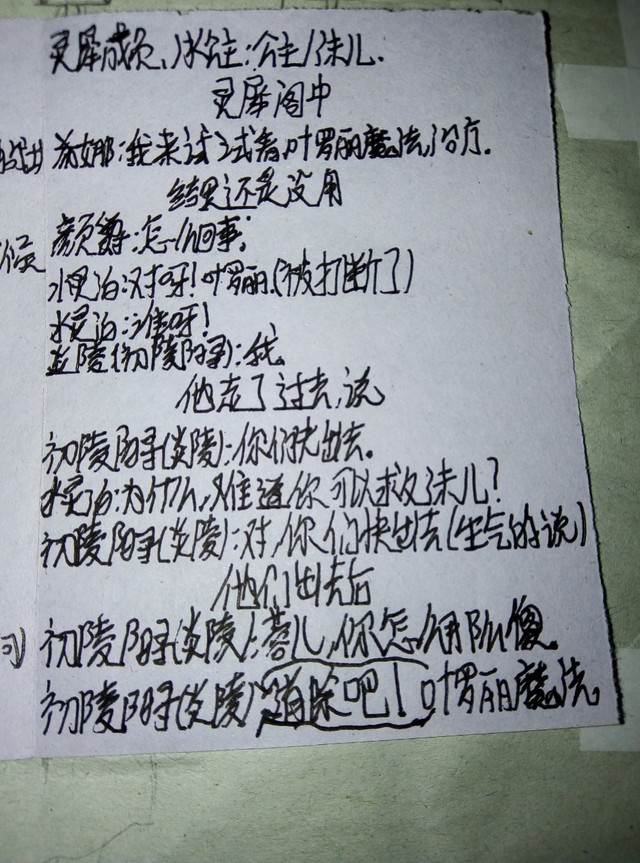 灵犀成员、水公主:公主/沫儿.
灵犀阁中
娜:我来试试看,叶罗丽魔法治疗.
结果还是没用
候
颜爵:怎么回事.
水灵泊:对呀!叶罗丽(被打断了)
水灵泊:谁呀!
炎陵(初陵阳浔):我.
他走了过去,说
初陵阳浔(炎陵):你们快出去。
水灵泊:为什么,难道你可以救沫儿?
初陵阳浔(炎陵):对,你们快出去(生气的说)
他们出去后
初陵阳浔(炎陵):儿,你怎么那么傻。
初陵阳浔(炎陵):消除吧!叶罗丽魔法。